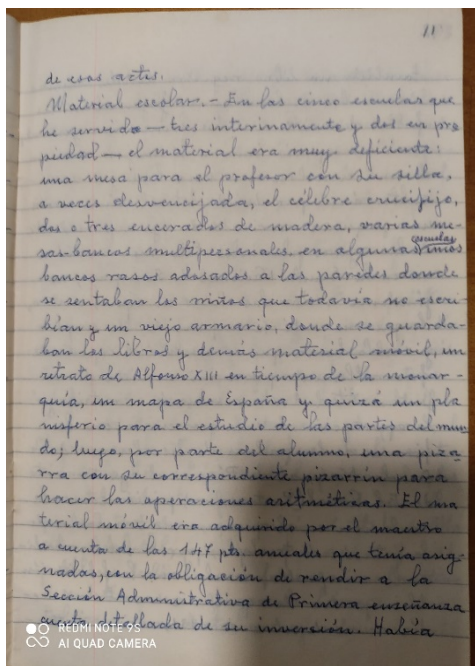 11
de esos actos.
Material escolar.- En las cinco escuelas que
he servido — tres interinamente y dos en pro
piedad — el material era muy deficiente:
una mesa para el profesor con su silla,
a veces desvencijada, el célebre crucifijo,
dos o tres encerados de madera, varias me-
sas-bancos multipersonales, en algunas escuelas unos
bancos rasos adosados a las paredes donde
se sentaban los niños que todavía no escri
bían y un viejo armario, donde se guarda-
ban los libros y demás material móvil, un
retrato de Alfonso XIII en tiempo de la monar-
quía, un mapa de España y quizá un pla
nisferio para el estudio de las partes del mun
do; luego, por parte del alumno, una piza
rra con su correspondiente pizarrín para
hacer las operaciones aritméticas. El ma
terial móvil era adquirido por el maestro
a cuenta de las 147 pts. anuales que tenía asig-
nadas, con la obligación de rendir a la
Sección Administrativa de Primera enseñanza
cuenta detallada de su inversión. Había
REDMI NOTE 9S
AI QUAD CAMERA